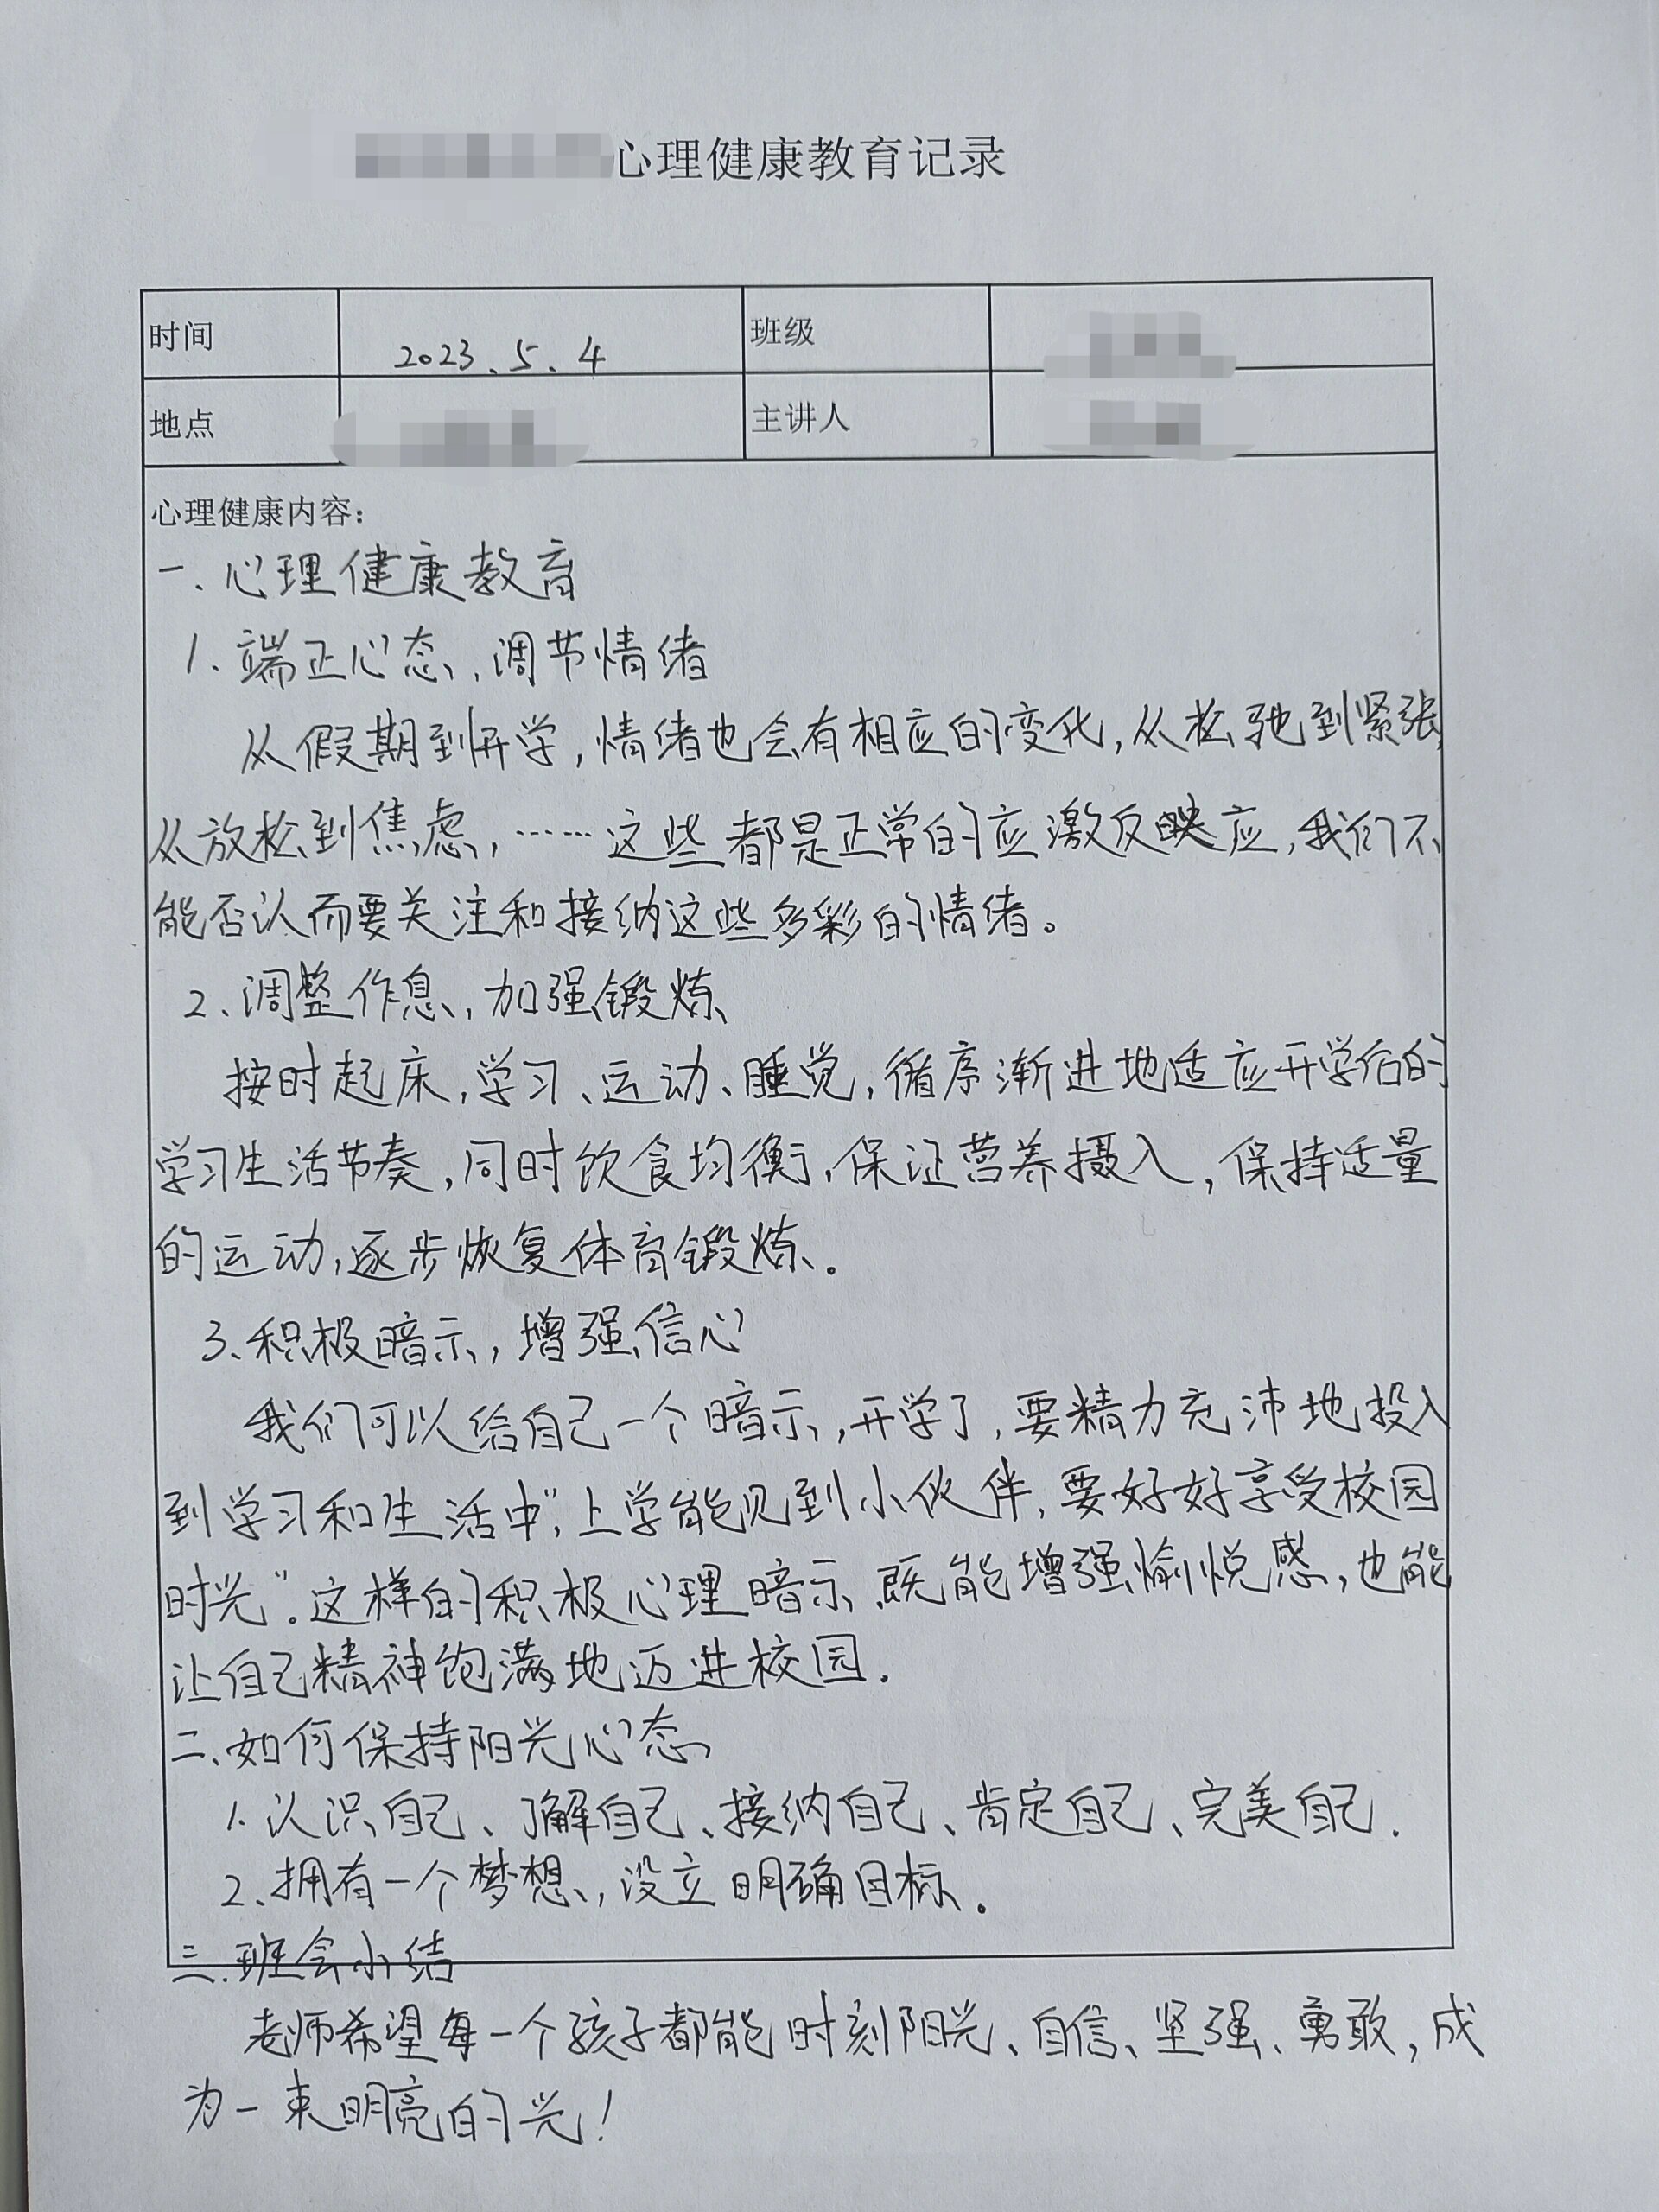 心理健康教育记录
时间 2023.5.4 班级
地点 主讲人
心理健康内容:
一.心理健康教育
1.端正心态,调节情绪
从假期到开学,情绪也会有相应的变化,从松弛到紧张,
从放松到焦虑,……这些都是正常的应激反应,我们不
能否认而要关注和接纳这些多彩的情绪。
2、调整作息,加强锻炼
按时起床,学习、运动、睡觉,循序渐进地适应开学后的
学习生活节奏,同时饮食均衡,保证营养摄入,保持适量
的运动,逐步恢复体育锻炼。
3、积极暗示,增强信心
我们可以给自己一个暗示,开学了,要精力充沛地投入
到学习和生活中”,上学能见到小伙伴,要好好享受校园
时光”。这样的积极心理暗示、既能增强愉悦感,也能
让自己精神饱满地迈进校园.
二、如何保持阳光心态
1.认识自己、了解自己、接纳自己、肯定自己、完美自己.
2、拥有一个梦想,设立明确目标。
三.班会小结
老师希望每一个孩子都能时刻阳光、自信、坚强、勇敢,成
为一束明亮的光!